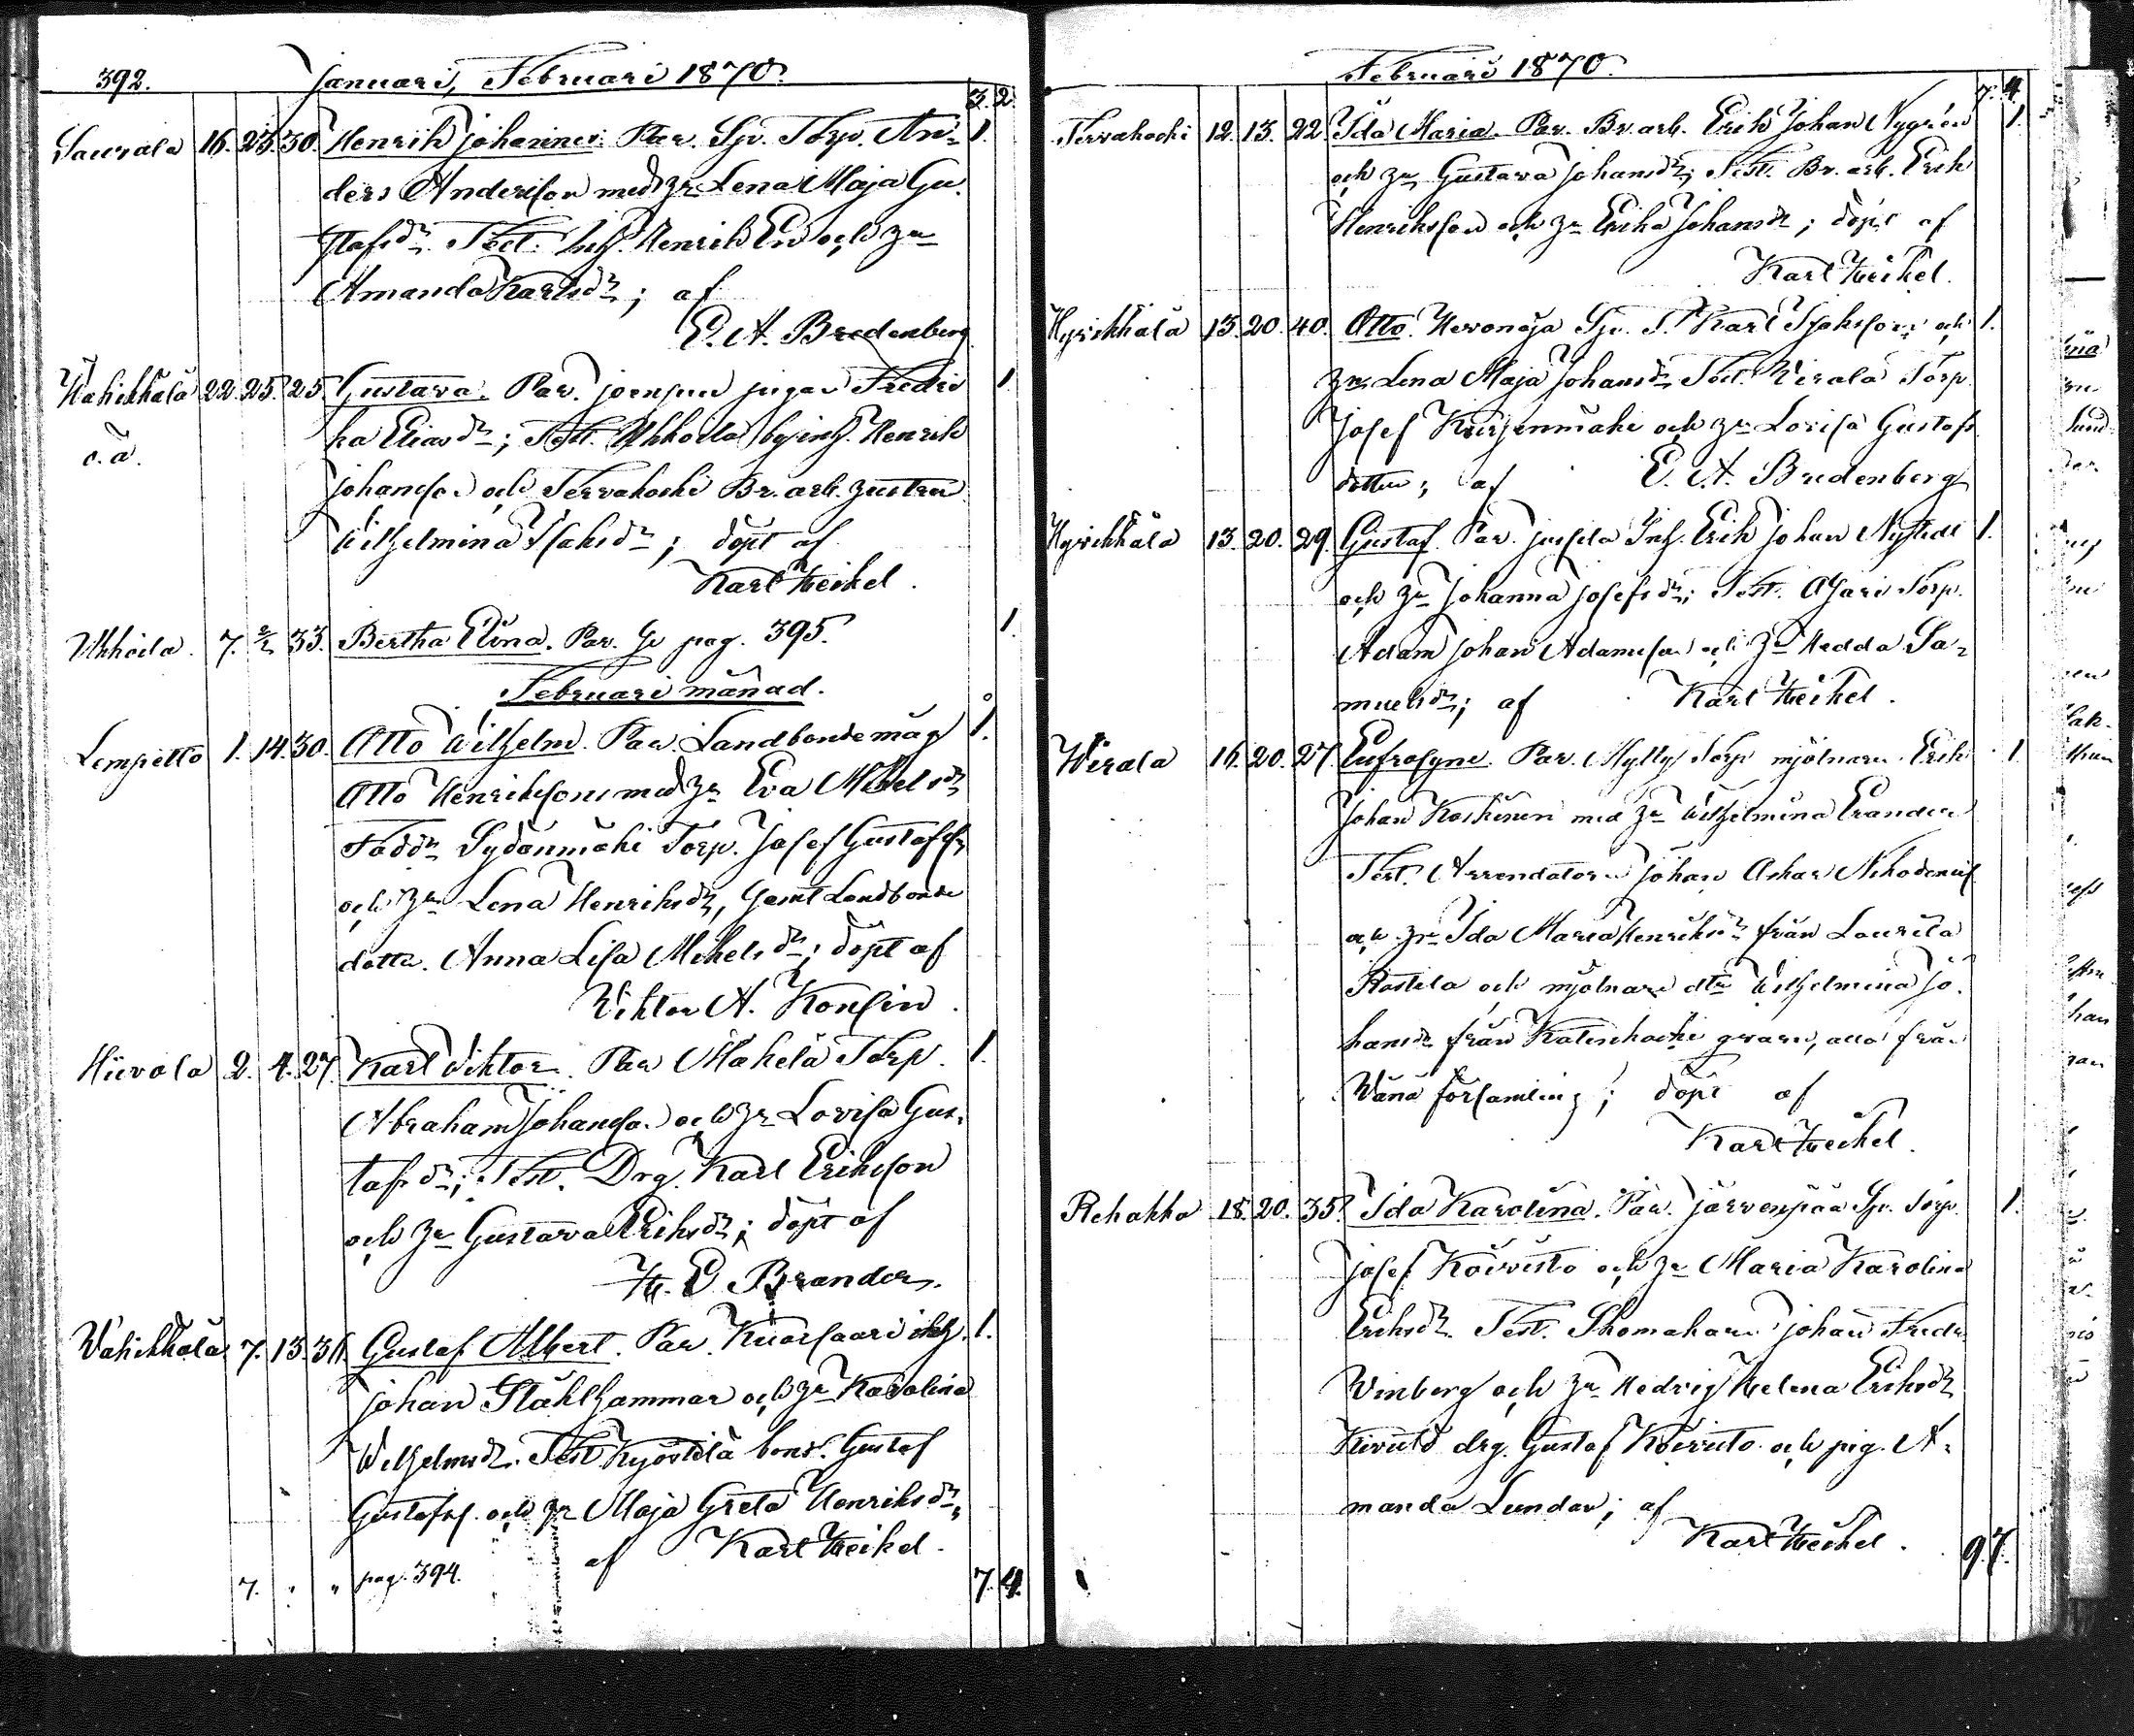 392. Januari, Februari 1870.
3. 2.
Saurala 16. 23. 30. Henrik Johannes. Par. Spr. Torp. An- 1.
ders Andersson med hr Lena Maja Gu-
stafsdr. Test. Inh. Henrik En och hr
Amanda Karlsdr; af
E. A. Bredenberg
Wahikkala 22. 25. 25. Gustava. Par. pigan Fredri- 1.
ka Eliasdr; Test. Uhkoila byinh. Henrik
o. ä.
Johansson och Tervakoski Br. arb. hustru
Wilhelmina Isaksdr; döpt af
Karl Heikel.
Uhkoila. 7. 2/2 33. Bertha Elina. Par. Se pag. 395. 1.
Februari månad.
Lempeltto 1. 14. 30. Otto Wilhelm. Par. Landbondemåg 1.
Otto Henriksson med hr Eva Mikelsdr
Fadd. Sydänmäki Torp. Josef Gustafss.
och hr Lena Henriksdr, samt Landbonde
dottr. Anna Lisa Mikelsdr; döpt af
Viktor A. Konsin.
Hiivola 2. 4. 27. Karl Viktor. Par Mäkelä Torp. 1.
Abraham Johansson och hr Lovisa Gus-
tafsdr; Test. Drg. Karl Eriksson
och hr Gustava Eriksdr; döpt af
K. E. Brander.
Wahikkala 7. 13. 36. Gustaf Albert. Par. Kuorsaari inh. 1.
Johan Stählhammar och hr Karolina
Wilhelmsdr. Test. Kyöstilä bond. Gustaf
Gustafss. och hr Maja Greta Henriksdr,
af Karl Heikel.
7. " " pag. 394. 7. 4.
Februari 1870.
7. 4.
Tervakoski 12. 13. 22. Ida Maria. Par. Br. arb. Erik Johan Nygrén 1.
och hr Gustava Johansdr; Test. Br. arb. Erik
Henriksson och hr Erika Johansdr; döpt af
Karl Heikel.
Hyvikkälä 13. 20. 40. Otto. Hevonoja Spr. T. Karl Isaksson och 1.
hr. Lena Maja Johansdr, Test. Virala Torp.
Josef Kurjenmäki och hr Lovisa Gustafs
dotter; af E. A. Bredenberg
Hyvikkälä 13. 20. 29. Gustaf. Par. Jussila Inh. Erik Johan Nystedt 1.
och hr Johanna Josefsdr; Test. Ojari Torp.
Adam Johan Adamsson och hr Hedda Sa-
muelsdr; af Karl Heikel.
Wirala 16. 20. 27. Eufrosyne. Par. Mylly Torp mjölnaren Erik 1.
Johan Koskinen med hr Wilhelmina Erander
Test. Arrendatorn Johan Oskar Nikodemus
och hr Ida Maria Henriksdr från Laurila
Rostila och mjölnare dtr Wilhelmina Jo-
hansdr från Katiskoski qvarn, alla från
Wånå församling; döpt af
Karl Heikel.
Rehakka 18. 20. 35. Ida Karolina. Par. Järvenpää Spr. Torp. 1.
Josef Koivisto och hr Maria Karolina
Eriksdr. Test. Skomakare Johan Fredr.
Winberg och hr Hedvig Helena Eriksdr
drg. Gustaf Koivisto och pig. A-
manda Lundan; af
Karl Heikel.
9. 7.